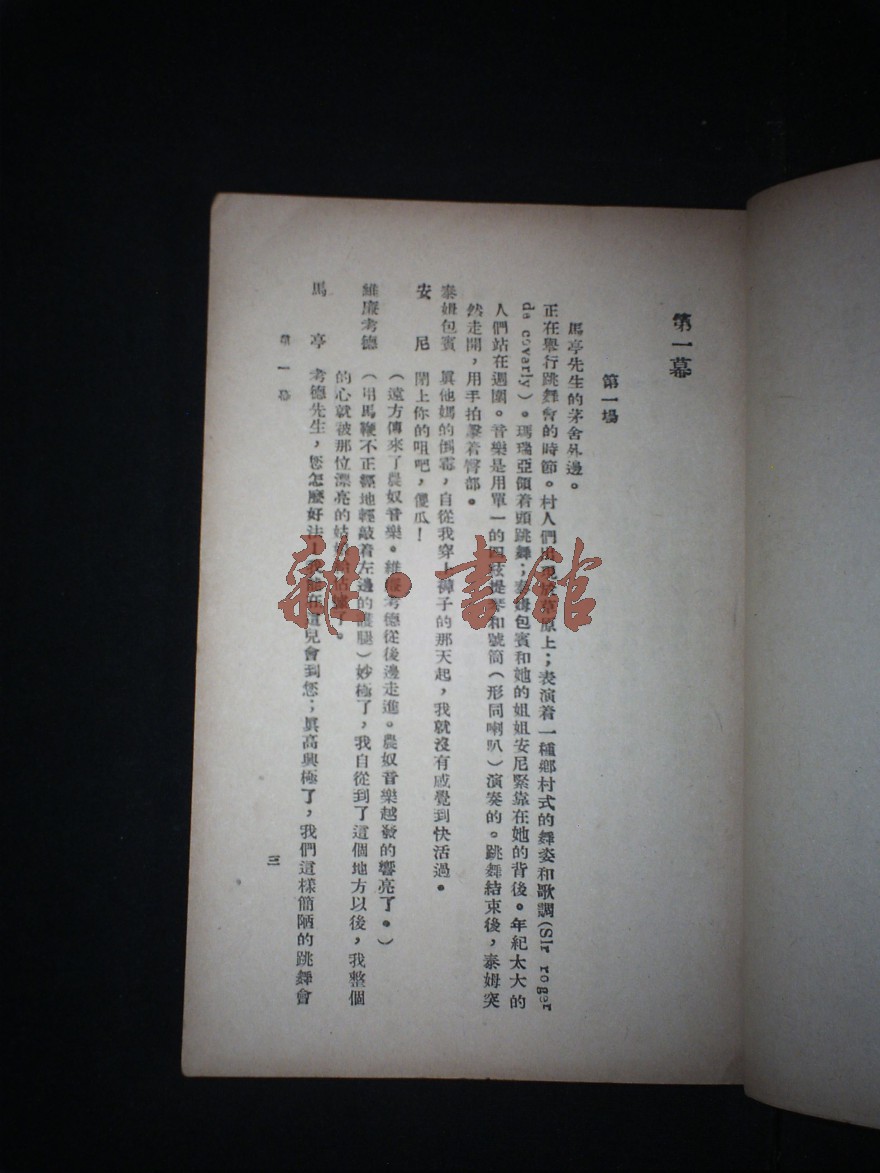 第一幕
第一場
馬亭先生的茅舍外邊。
正在舉行跳舞會的時節。村人們出現於草原上；表演着一種鄉村式的舞姿和歌調(Sir roger
de covarly)。瑪瑞亞領着頭跳舞；泰姆包賓和她的姐姐安尼緊靠在她的背後。年紀太大的
人們站在週圍。音樂是用單一的四絃提琴和號筒(形同喇叭)演奏的。跳舞結束後，泰姆突
然走開，用手拍擊着臀部。
泰姆包賓 眞他媽的倒霉，自從我穿上褲子的那天起，我就沒有感覺到快活過。
安 尼 閉上你的咀吧，傻瓜！
(遠方傳來了農奴音樂。維廉考德從後邊走進。農奴音樂越發的響亮了。)
維廉考德 (用馬鞭不正經地輕敲着左邊的護腿)妙極了，我自從到了這個地方以後，我整個
的心就被那位漂亮的姑娘給佔據了。
馬 亭 考德先生，您怎麼好法！我能在這兒會到您；眞高興極了，我們這樣簡陋的跳舞會
第一幕
三
雜·書館